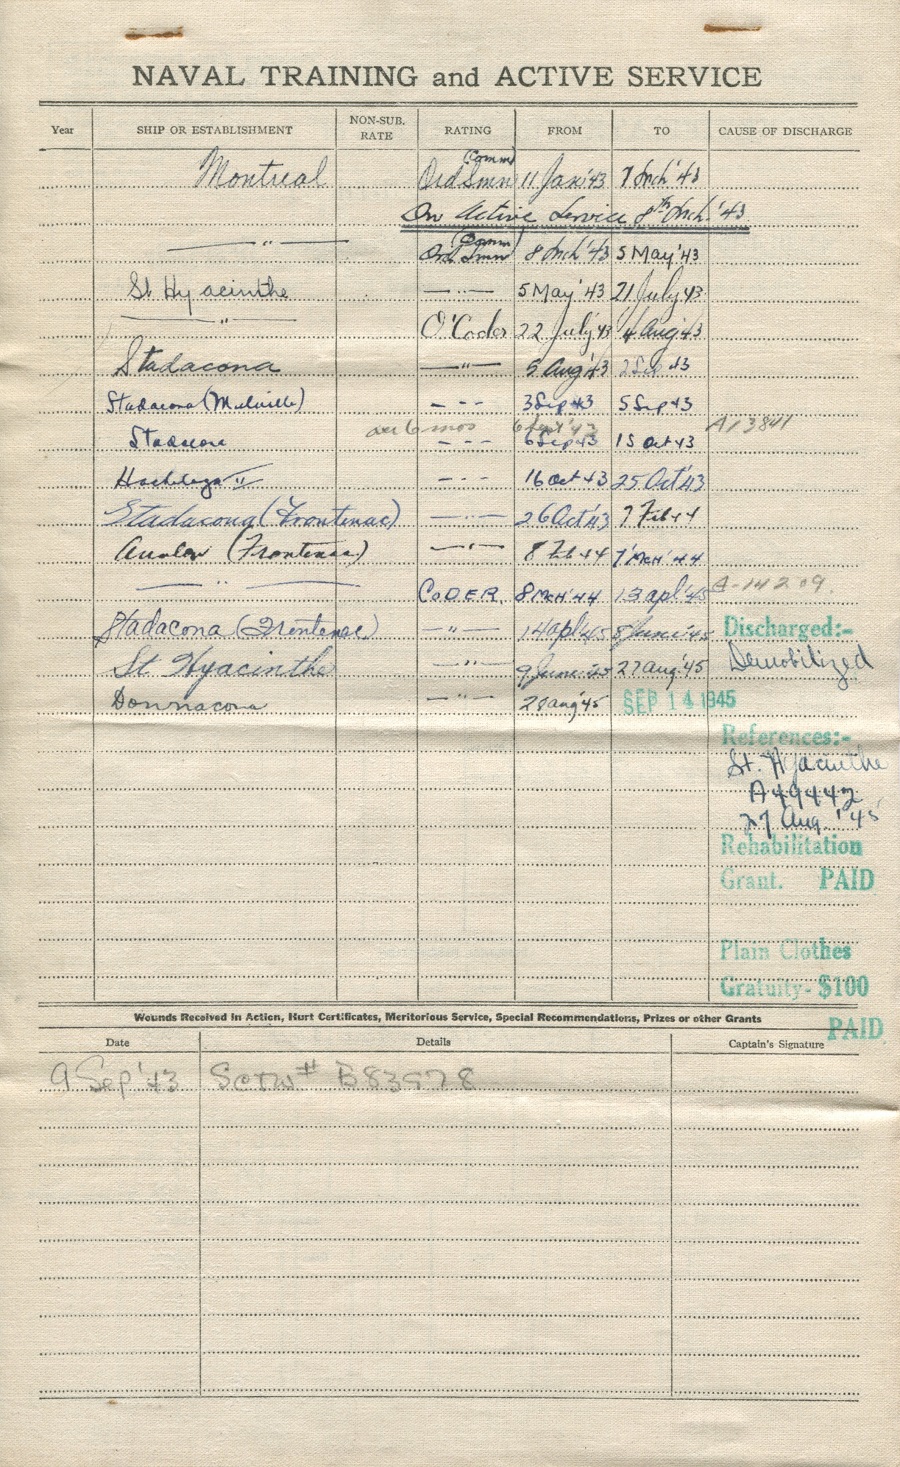 NAVAL TRAINING and ACTIVE SERVICE
Year SHIP OR ESTABLISHMENT NON-SUB. RATE RATING FROM TO CAUSE OF DISCHARGE
Montreal Ord Smn (Comm) 11 Jan '43 7 Mch '43
On Active Service 8th Mch. '43
— " — Ord Smn (Comm) 8 Mch '43 5 May '43
St Hyacinthe — " — 5 May '43 21 July 43
— " — O'Coder 22 July '43 4 Aug 43
Stadacona — " — 5 Aug '43 2 Sep 43
Stadacona (Melville) - - - 3 Sep 43 5 Sep 43
6 mos 6 Sept '43 A13841
Stadacona - - - 6 Sep 43 15 Oct 43
Hochelaga II - - - 16 Oct 43 25 Oct '43
Stadacona (Frontenac) — " — 26 Oct '43 7 Feb 44
Avalon (Frontenac) — " — 8 Feb 44 7 Mch '44
— " — CODER. 8 Mch '44 13 Apl '45 A-14209.
Stadacona (Frontenac) — " — 14 Apl 45 8 June '45 Discharged:-
St Hyacinthe — " — 9 June '45 27 Aug '45 Demobilized
Donnacona — " — 28 Aug '45 SEP 14 1945
References:-
St. Hyacinthe
A49442
27 Aug. '45
Rehabilitation
Grant. PAID
Plain Clothes
Gratuity- $100
PAID
Wounds Received in Action, Hurt Certificates, Meritorious Service, Special Recommendations, Prizes or other Grants
Date Details Captain's Signature
9 Sep '43 B83978